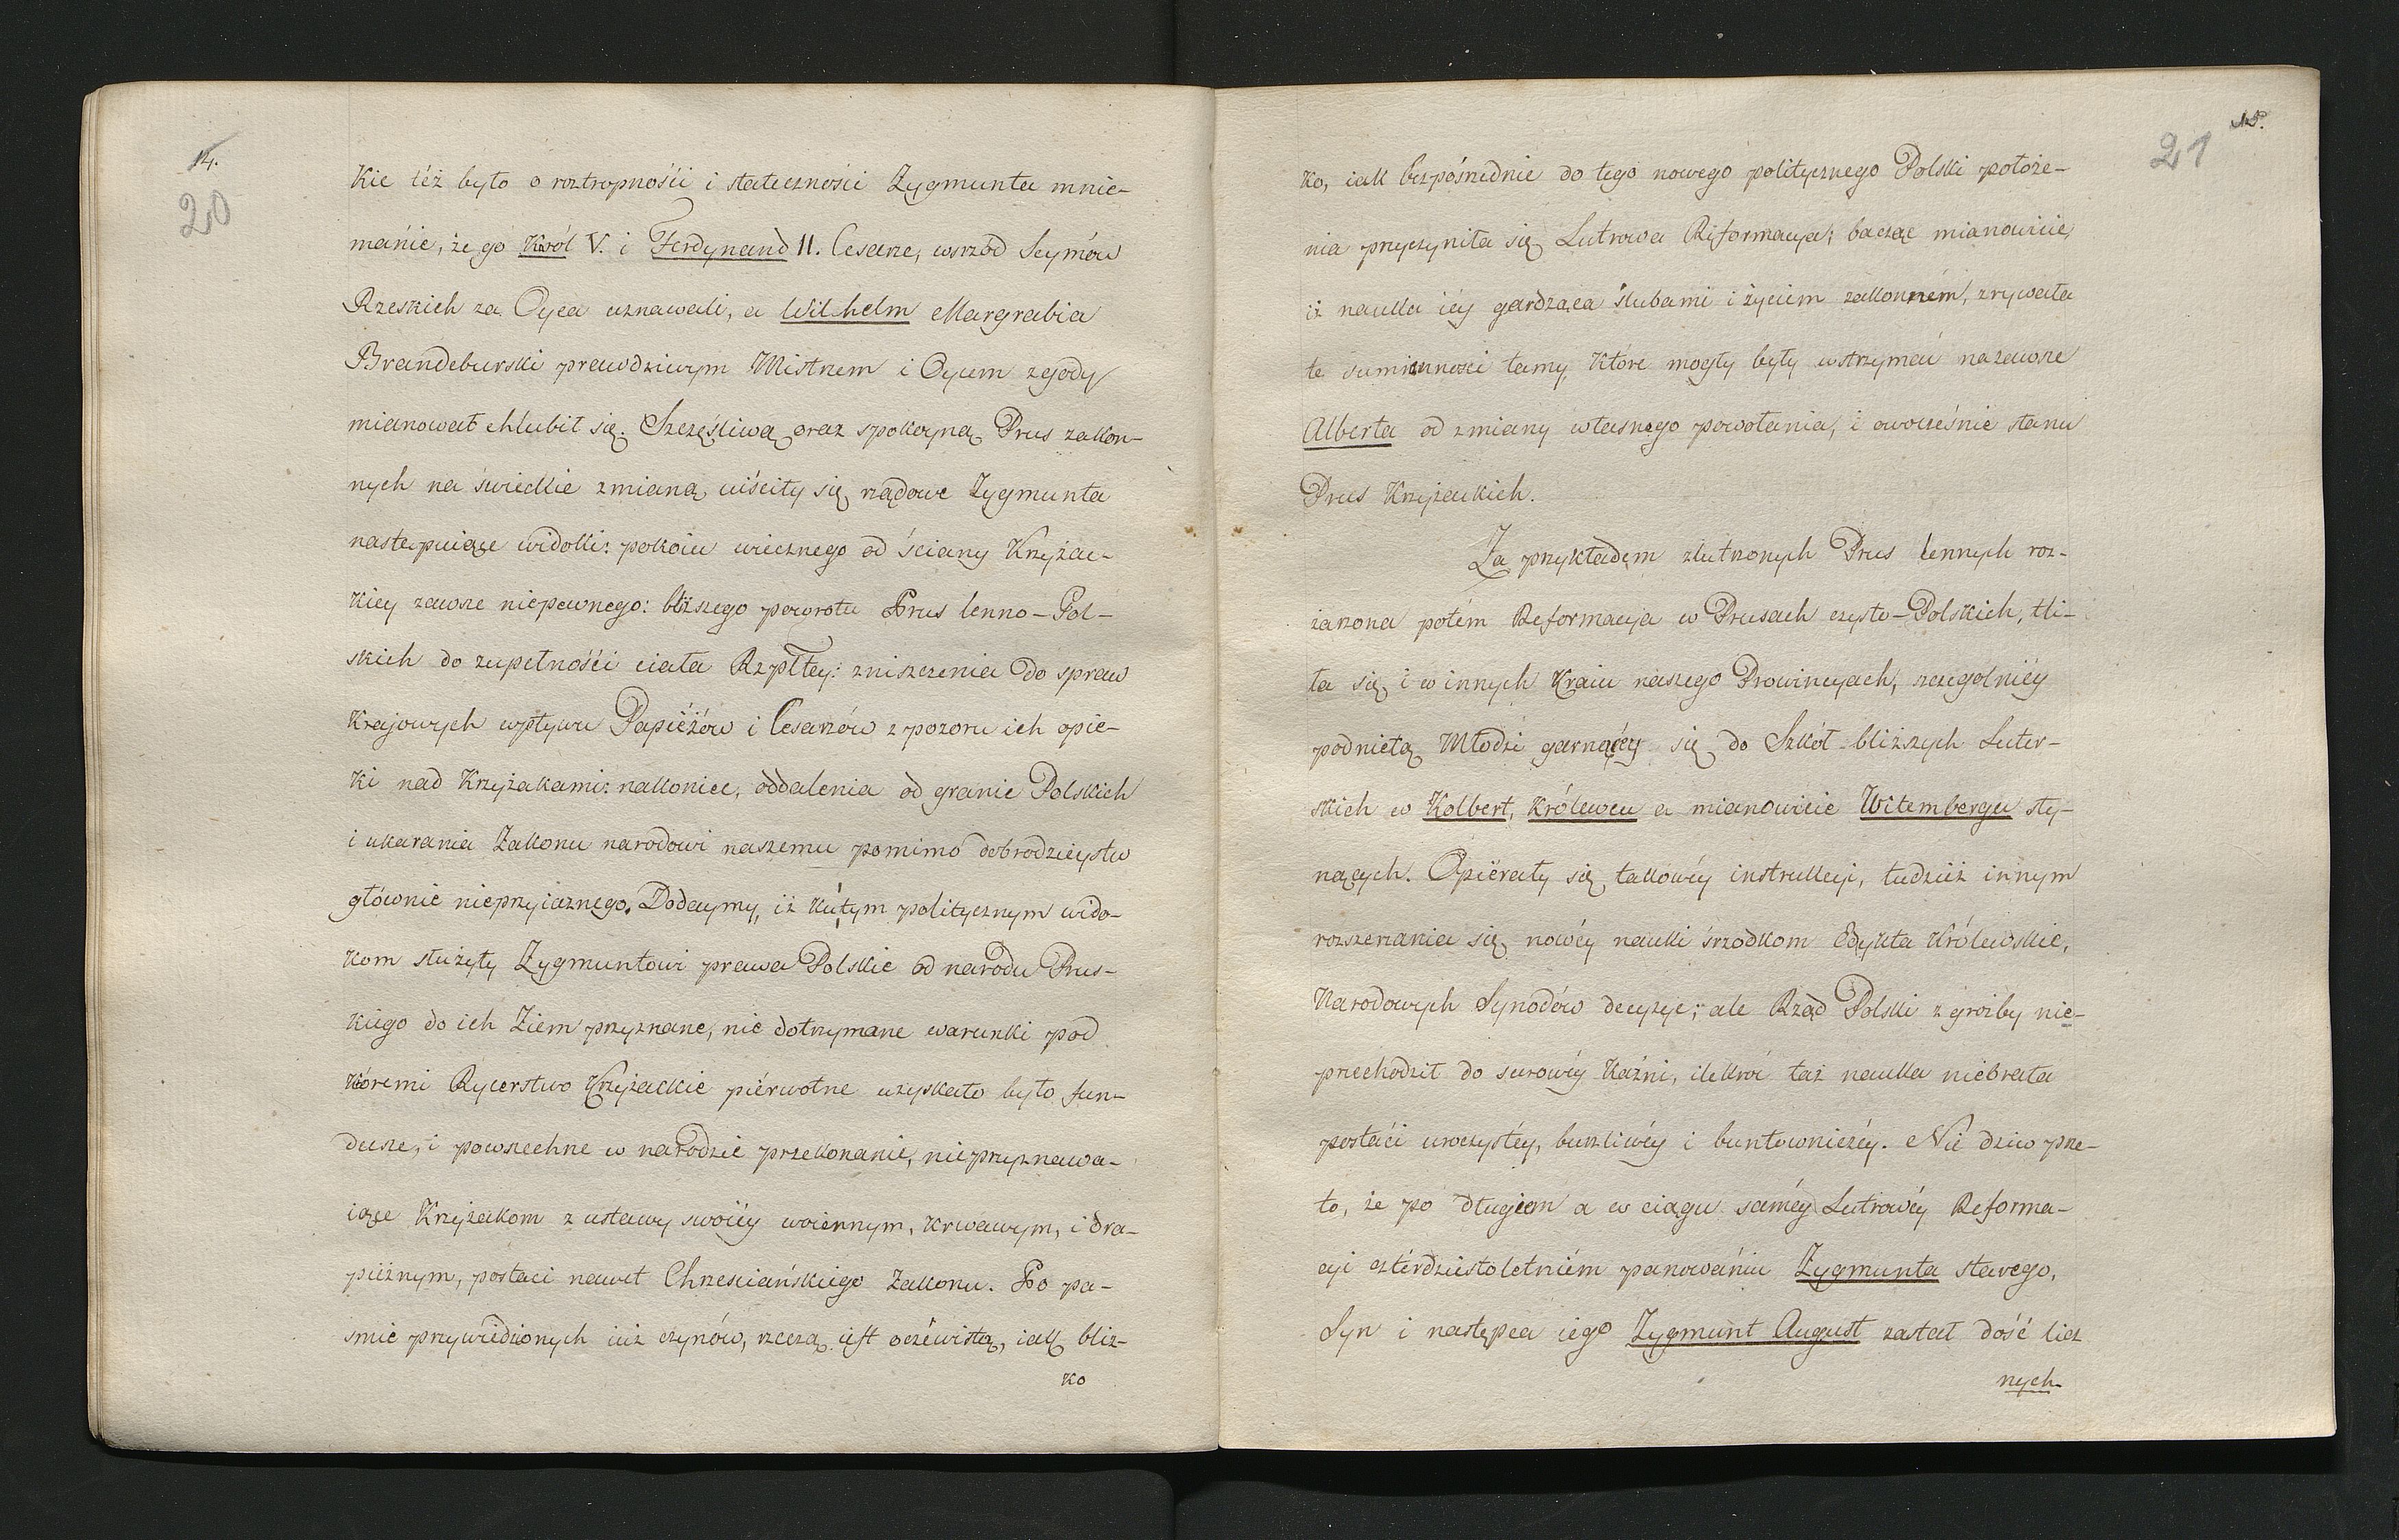 14.
20
Kie też było o roztropnośći i stateczności Zygmunta mnie-
mańie, że go Karól V. i Ferdynand II. Cesarze, wsrzód Seymów
Rzeskich za Oyca uznawali, a Wilhelm Margrabia
Brandeburski prawdziwym Mistrzem i Oycem zgody
mianować chlubił się. Szczęśliwą oraz spokoyną Prus zakon-
nych na świeckie zmianą uiściły się rządowe Zygmunta
następuiące widoki: pokoiu wiecznego od ściany Krzyżac-
kiey zawsze niepewnego: bliższego powrotu Prus lenno-Pol-
skich do zupełnośći ciała Rzpltey: zniszczenia do spraw
Krajowych wpływu Papieżów i Cesarzów z pozoru ich opie-
ki nad Krzyżakami: nakoniec, oddalenia od granic Polskich
i ukarania Zakonu narodowi naszemu pomimo dobrodzieystw
głównie nieprzyiaznego. Dodaymy, iż ku tym politycznym wido-
kom służyły Zygmuntowi prawa Polskie od narodu Prus-
kiego do ich Ziem przyznane, nie dotrzymane warunki pod
któremi Rycerstwo Krzyżackie piérwotne uzyskało było fun-
dusze, i powszechne w narodzie przekonanie, nieprzyznawa-
iące Krzyżakom z ustawy swoiéy woiennym, krwawym, i dra-
pieżnym, postaci nawet Chrzesciańskiego Zakonu. Po pa-
śmie przywiedzionych iuż czynów, rzeczą iest oczéwistą, iak bliz-
ko
15.
21
ko, iak bezpośrednie do tego nowego politycznego Polski położe-
nia przyczyniła się Lutrowa Reformacya; bacząc mianowicie,
iż nauka iéy gardząca ślubami i życiem zakonném, zrywała
te sumienności tamy, które mogły były wstrzymać nazawsze
Alberta od zmiany własnego powołania, i owocześnie stanu
Prus Krzyżackich.
Za przykładem zlutrzonych Prus lennych roz-
żarzona potém Reformacya w Prusach czysto-Polskich, tli-
ła się i w innych Kraiu naszego Prowincyach, szczególniéy
podnietą Młodzi garnącéy się do Szkół bliższych Luter-
skich w Kolbert, Królewcu a mianowicie Witembergu sły-
nących. Opiérały się takowéy instrukcyi, tudzież innym
rozszerzania się nowéy nauki śrzodkom Edykta Królewskie,
Narodowych Synodów decyzye; ale Rząd Polski z groźby nie-
przechodził do surowéy kaźni, ilekroć taż nauka niebrała
postaći uroczystéy, burzliwéy i buntowniczéy. Nie dziw prze-
to, że po długiem a w ciągu saméy Lutrowéy Reforma-
cyi cztérdziestoletniém panowańiu Zygmunta starego,
Syn i następca iego Zygmunt August zastał dość licz
nych